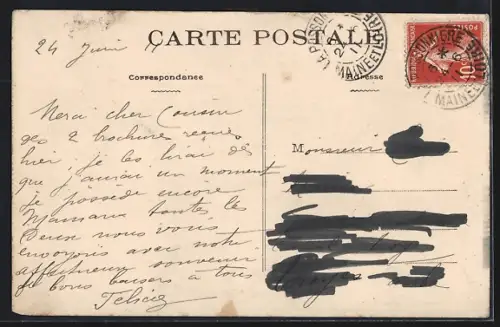 CARTE POSTALE
24 Juin 11
Correspondance
Adresse
Merci cher Cousin
des 2 brochures reçues
hier, je les lirai dès
que j'aurai un moment
je possède encore
Mamans toutes les
deux nous vous
envoyons avec notre
affectueux souvenir
de bons baisers à tous
Monsieur
MAINE ET LOIRE
10
POSTES